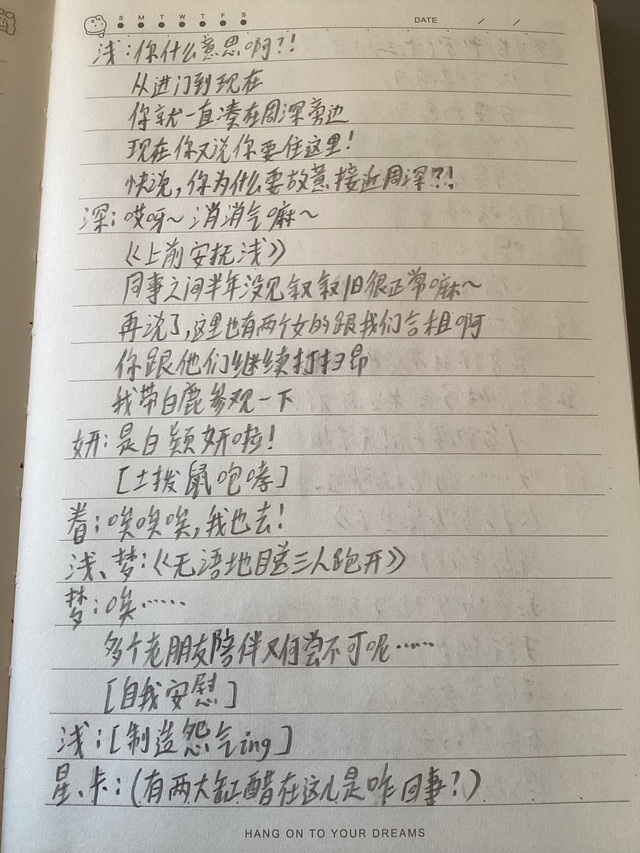 S M T W T F S
DATE / /
浅：你什么意思啊?!
从进门到现在
你就一直凑在周深旁边
现在你又说你要住这里！
快说，你为什么要故意接近周深?!
深：哎呀～消消气嘛～
《上前安抚浅》
同事之间半年没见叙叙旧很正常嘛～
再说了，这里也有两个女的跟我们合租啊
你跟他们继续打扫昂
我带白鹿参观一下
妍：是白颖妍啦！
[土拨鼠咆哮]
眷：唉唉唉，我也去！
浅、梦：《无语地目送三人跑开》
梦：唉……
多个老朋友陪伴又何尝不可呢……
[自我安慰]
浅：[制造怨气ing]
星、卡：(有两大缸醋在这儿是咋回事？)
HANG ON TO YOUR DREAMS